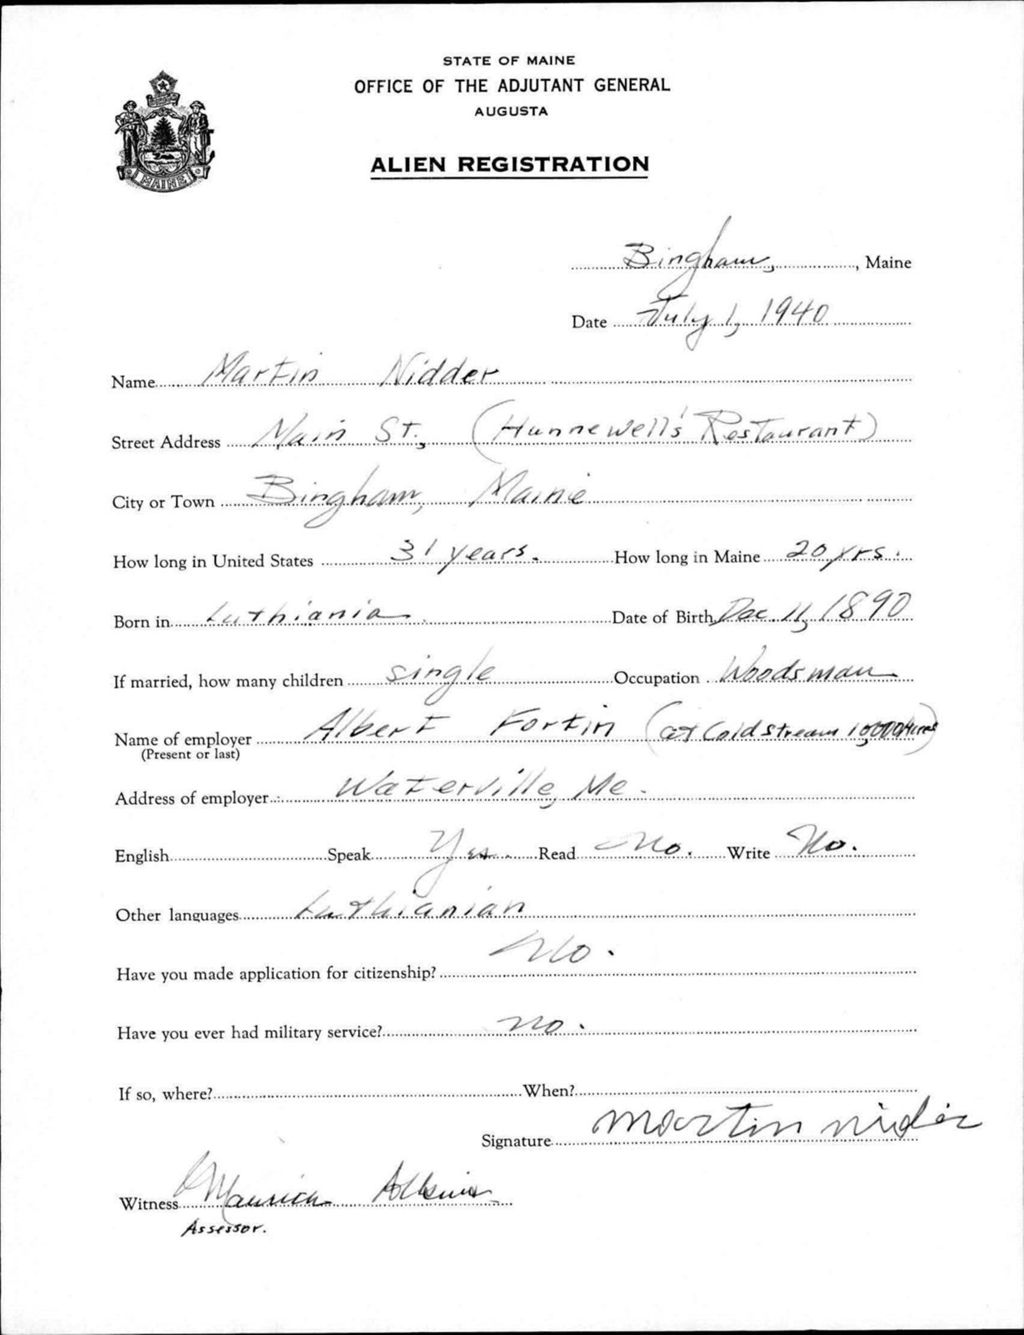 STATE OF MAINE
OFFICE OF THE ADJUTANT GENERAL
AUGUSTA
ALIEN REGISTRATION
MAINE
Bingham, , Maine
Date July 1, 1940
Name Martin Nidder
Street Address Main St., (Hunnewell's Restaurant)
City or Town Bingham, Maine
How long in United States 31 years. How long in Maine 20 yrs.
Born in Luthiania Date of Birth Dec. 11, 1890
If married, how many children single Occupation Woodsman
Name of employer Albert Fortin (at Cold Stream 10,000 Acres)
(Present or last)
Address of employer Waterville, Me.
English Speak Yes. Read No. Write No.
Other languages Luthianian
Have you made application for citizenship? No.
Have you ever had military service? no.
If so, where? When?
Signature Martin nider
Witness Maurice
Assessor.